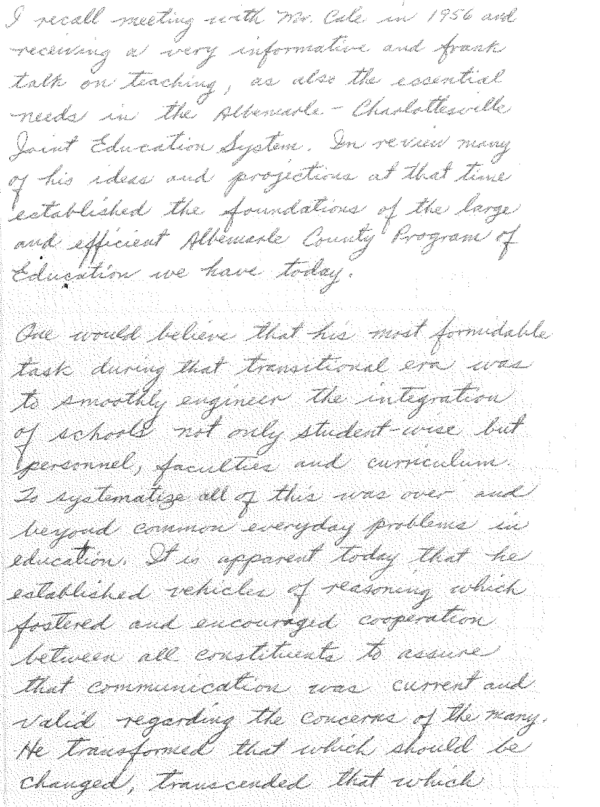 I recall meeting with Mr. Cale in 1956 and
receiving a very informative and frank
talk on teaching, as also the essential
needs in the Albemarle - Charlottesville
Joint Education System. In review many
of his ideas and projections at that time
established the foundations of the large
and efficient Albemarle County Program of
Education we have today.

One would believe that his most formidable
task during that transitional era was
to smoothly engineer the integration
of schools not only student-wise but
personnel, faculties and curriculum.
To systematize all of this was over and
beyond common everyday problems in
education. It is apparent today that he
established vehicles of reasoning which
fostered and encouraged cooperation
between all constituents to assure
that communication was current and
valid regarding the concerns of the many.
He transformed that which should be
changed, transcended that which